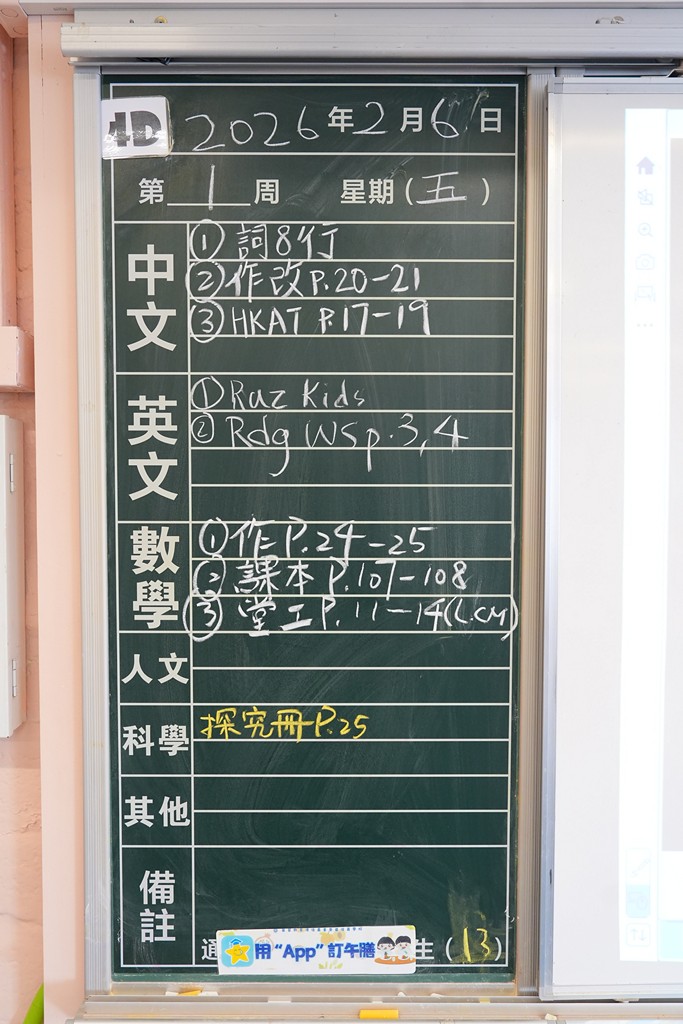 4D 2026年2月6日
第1周 星期(五)
中文
① 詞8行
② 作改P.20-21
③ HKAT P.17-19
英文
① Raz Kids
② Rdg WS p.3,4
數學
① 作P.24-25
② 課本P.107-108
③ 堂工P.11-14(L.C.M)
人文
科學
探究冊P.25
其他
備註
通 生(13)
用“App”訂午膳